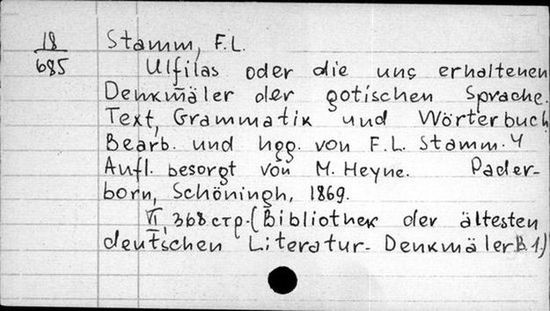 18
685
Stamm, F.L.
Ulfilas oder die uns erhaltenen
Denkmäler der gotischen Sprache.
Text, Grammatik und Wörterbuch
Bearb. und hgg. von F.L. Stamm. 4
Aufl. besorgt von M. Heyne. Pader-
born, Schöningh, 1869.
VI, 368 стр. (Bibliothek der ältesten
deutschen Literatur-Denkmäler B 1.)